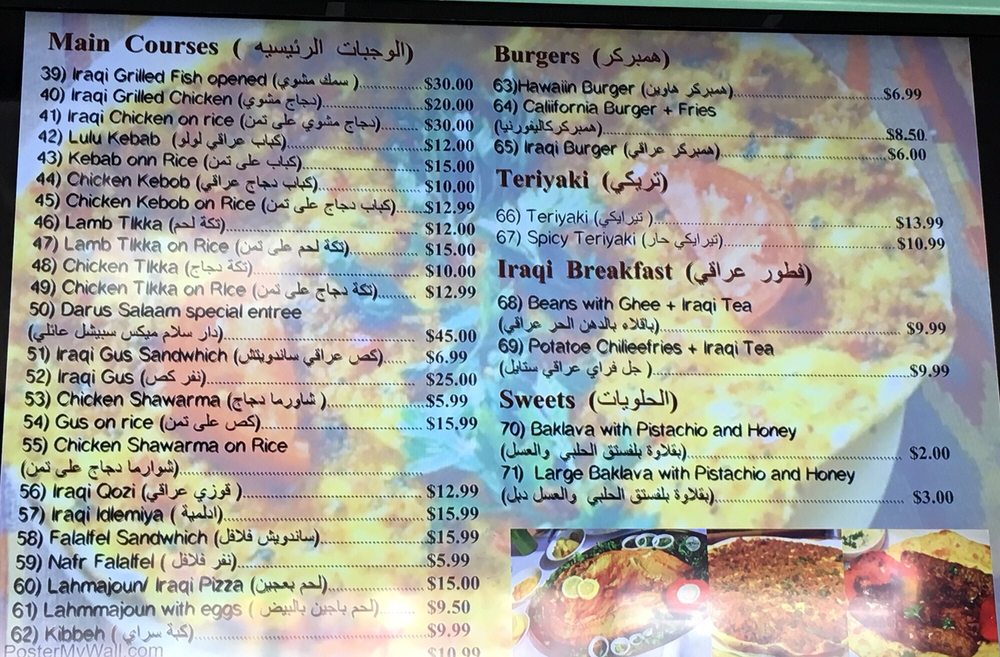 Main Courses ( الوجبات الرئيسيه)
39) Iraqi Grilled Fish opened (سمك مشوي )..........$30.00
40) Iraqi Grilled Chicken (دجاج مشوي)..........$20.00
41) Iraqi Chicken on rice (دجاج مشوي على تمن)..........$30.00
42) Lulu Kebab (كباب عراقي لولو)..........$12.00
43) Kebab onn Rice (كباب على تمن)..........$15.00
44) Chicken Kebob (كباب دجاج عراقي)..........$10.00
45) Chicken Kebob on Rice (كباب دجاج على تمن)..........$12.99
46) Lamb TIkka (تكة لحم)..........$12.00
47) Lamb TIkka on Rice (تكة لحم على تمن)..........$15.00
48) Chicken TIkka (تكة دجاج)..........$10.00
49) Chicken TIkka on RIce (تكة دجاج على تمن)..........$12.99
50) Darus Salaam special entree
(دار سلام ميكس سبيشل عائلي)..........$45.00
51) Iraqi Gus Sandwhich (كص عراقي ساندويتش)..........$6.99
52) Iraqi Gus (نفر كص)..........$25.00
53) Chicken Shawarma (شاورما دجاج )..........$5.99
54) Gus on rice (كص على تمن)..........$15,99
55) Chicken Shawarma on Rice
(شوارما دجاج على تمن)..........
56) Iraqi Qozi (قوزي عراقي )..........$12.99
57) Iraqi Idlemiya ( ادلمية)..........$15.99
58) Falalfel Sandwhich (ساندويش فلافل)..........$15.99
59) Nafr Falalfel ( نفر فلافل)..........$5.99
60) Lahmajoun/ Iraqi Pizza (لحم بعجين)..........$15.00
61) Lahmmajoun with eggs ( لحم باجين بالبيض)..........$9.50
62) Kibbeh ( كبة سراي)..........$9.99
$10.99
PosterMyWall.com
Burgers (همبركر)
63)Hawaiin Burger (همبركر هاوين)..........$6.99
64) Caliifornia Burger + Fries
(همبركركاليفورنيا)..........$8.50
65) Iraqi Burger (همبركر عراقي)..........$6.00
Teriyaki (تريكي)
66) Teriyaki (تيرايكي )..........$13.99
67) Spicy Teriyaki (تيرايكي حار)..........$10.99
Iraqi Breakfast (فطور عراقي)
68) Beans with Ghee + Iraqi Tea
(باقلاء بالدهن الحر عراقي)..........$9.99
69) Potatoe Chilieefries + Iraqi Tea
(جل فراي عراقي ستايل )..........$9.99
Sweets (الحلويات)
70) Baklava with Pistachio and Honey
(بقلاوة بلفستق الحلبي والعسل)..........$2.00
71) Large Baklava with Pistachio and Honey
(بقلاوة بلفستق الحلبي والعسل دبل)..........$3.00